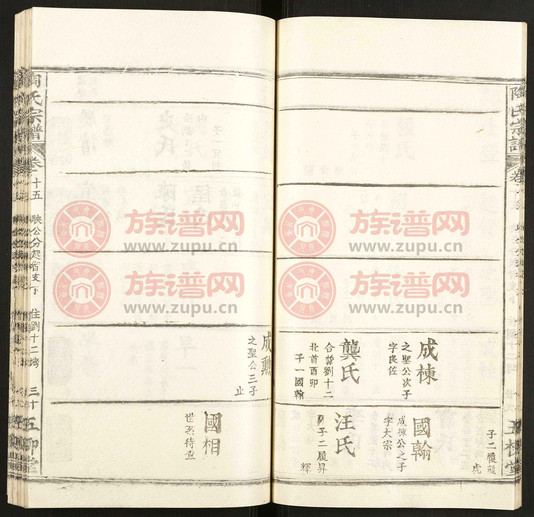 陶氏宗譜
成棟
之聖公次子
字良佐
龔氏
合諱劉十二
北首酉卯
子一國翰
國翰
成棟公之子
字大宗
汪氏
子二履昇
輝
子二履龍
虎
五柳堂
成勳
之聖公三子
止
國相
世系待查
陶氏宗譜
卷
十五
映公分
支下
住劉十二灣
三十
五柳堂
族谱网
www.zupu.cn
族谱网
www.zupu.cn
族谱网
www.zupu.cn
族谱网
www.zupu.cn